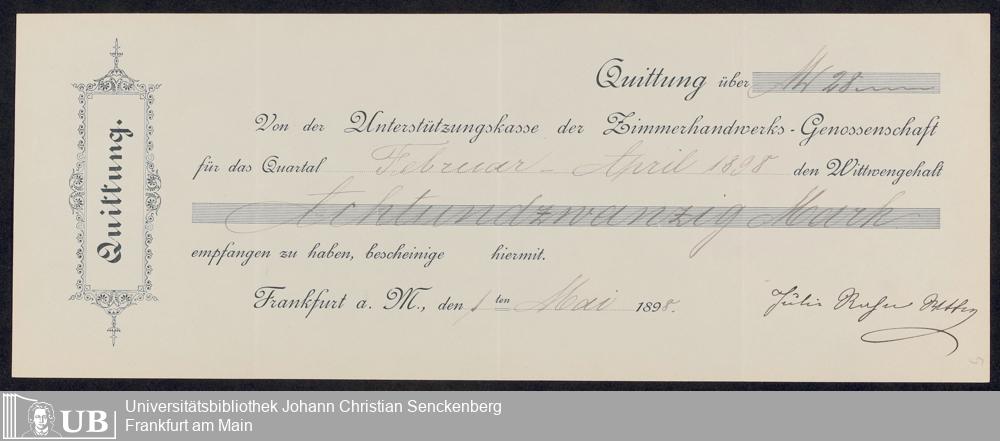 Quittung.
Quittung über M 28
Von der Unterstützungskasse der Zimmerhandwerks-Genossenschaft
für das Quartal Februar - April 1898 den Wittwengehalt
Achtundzwanzig Mark
empfangen zu haben, bescheinige hiermit.
Frankfurt a. M., den 1ten Mai 1898.
UB
Universitätsbibliothek Johann Christian Senckenberg
Frankfurt am Main